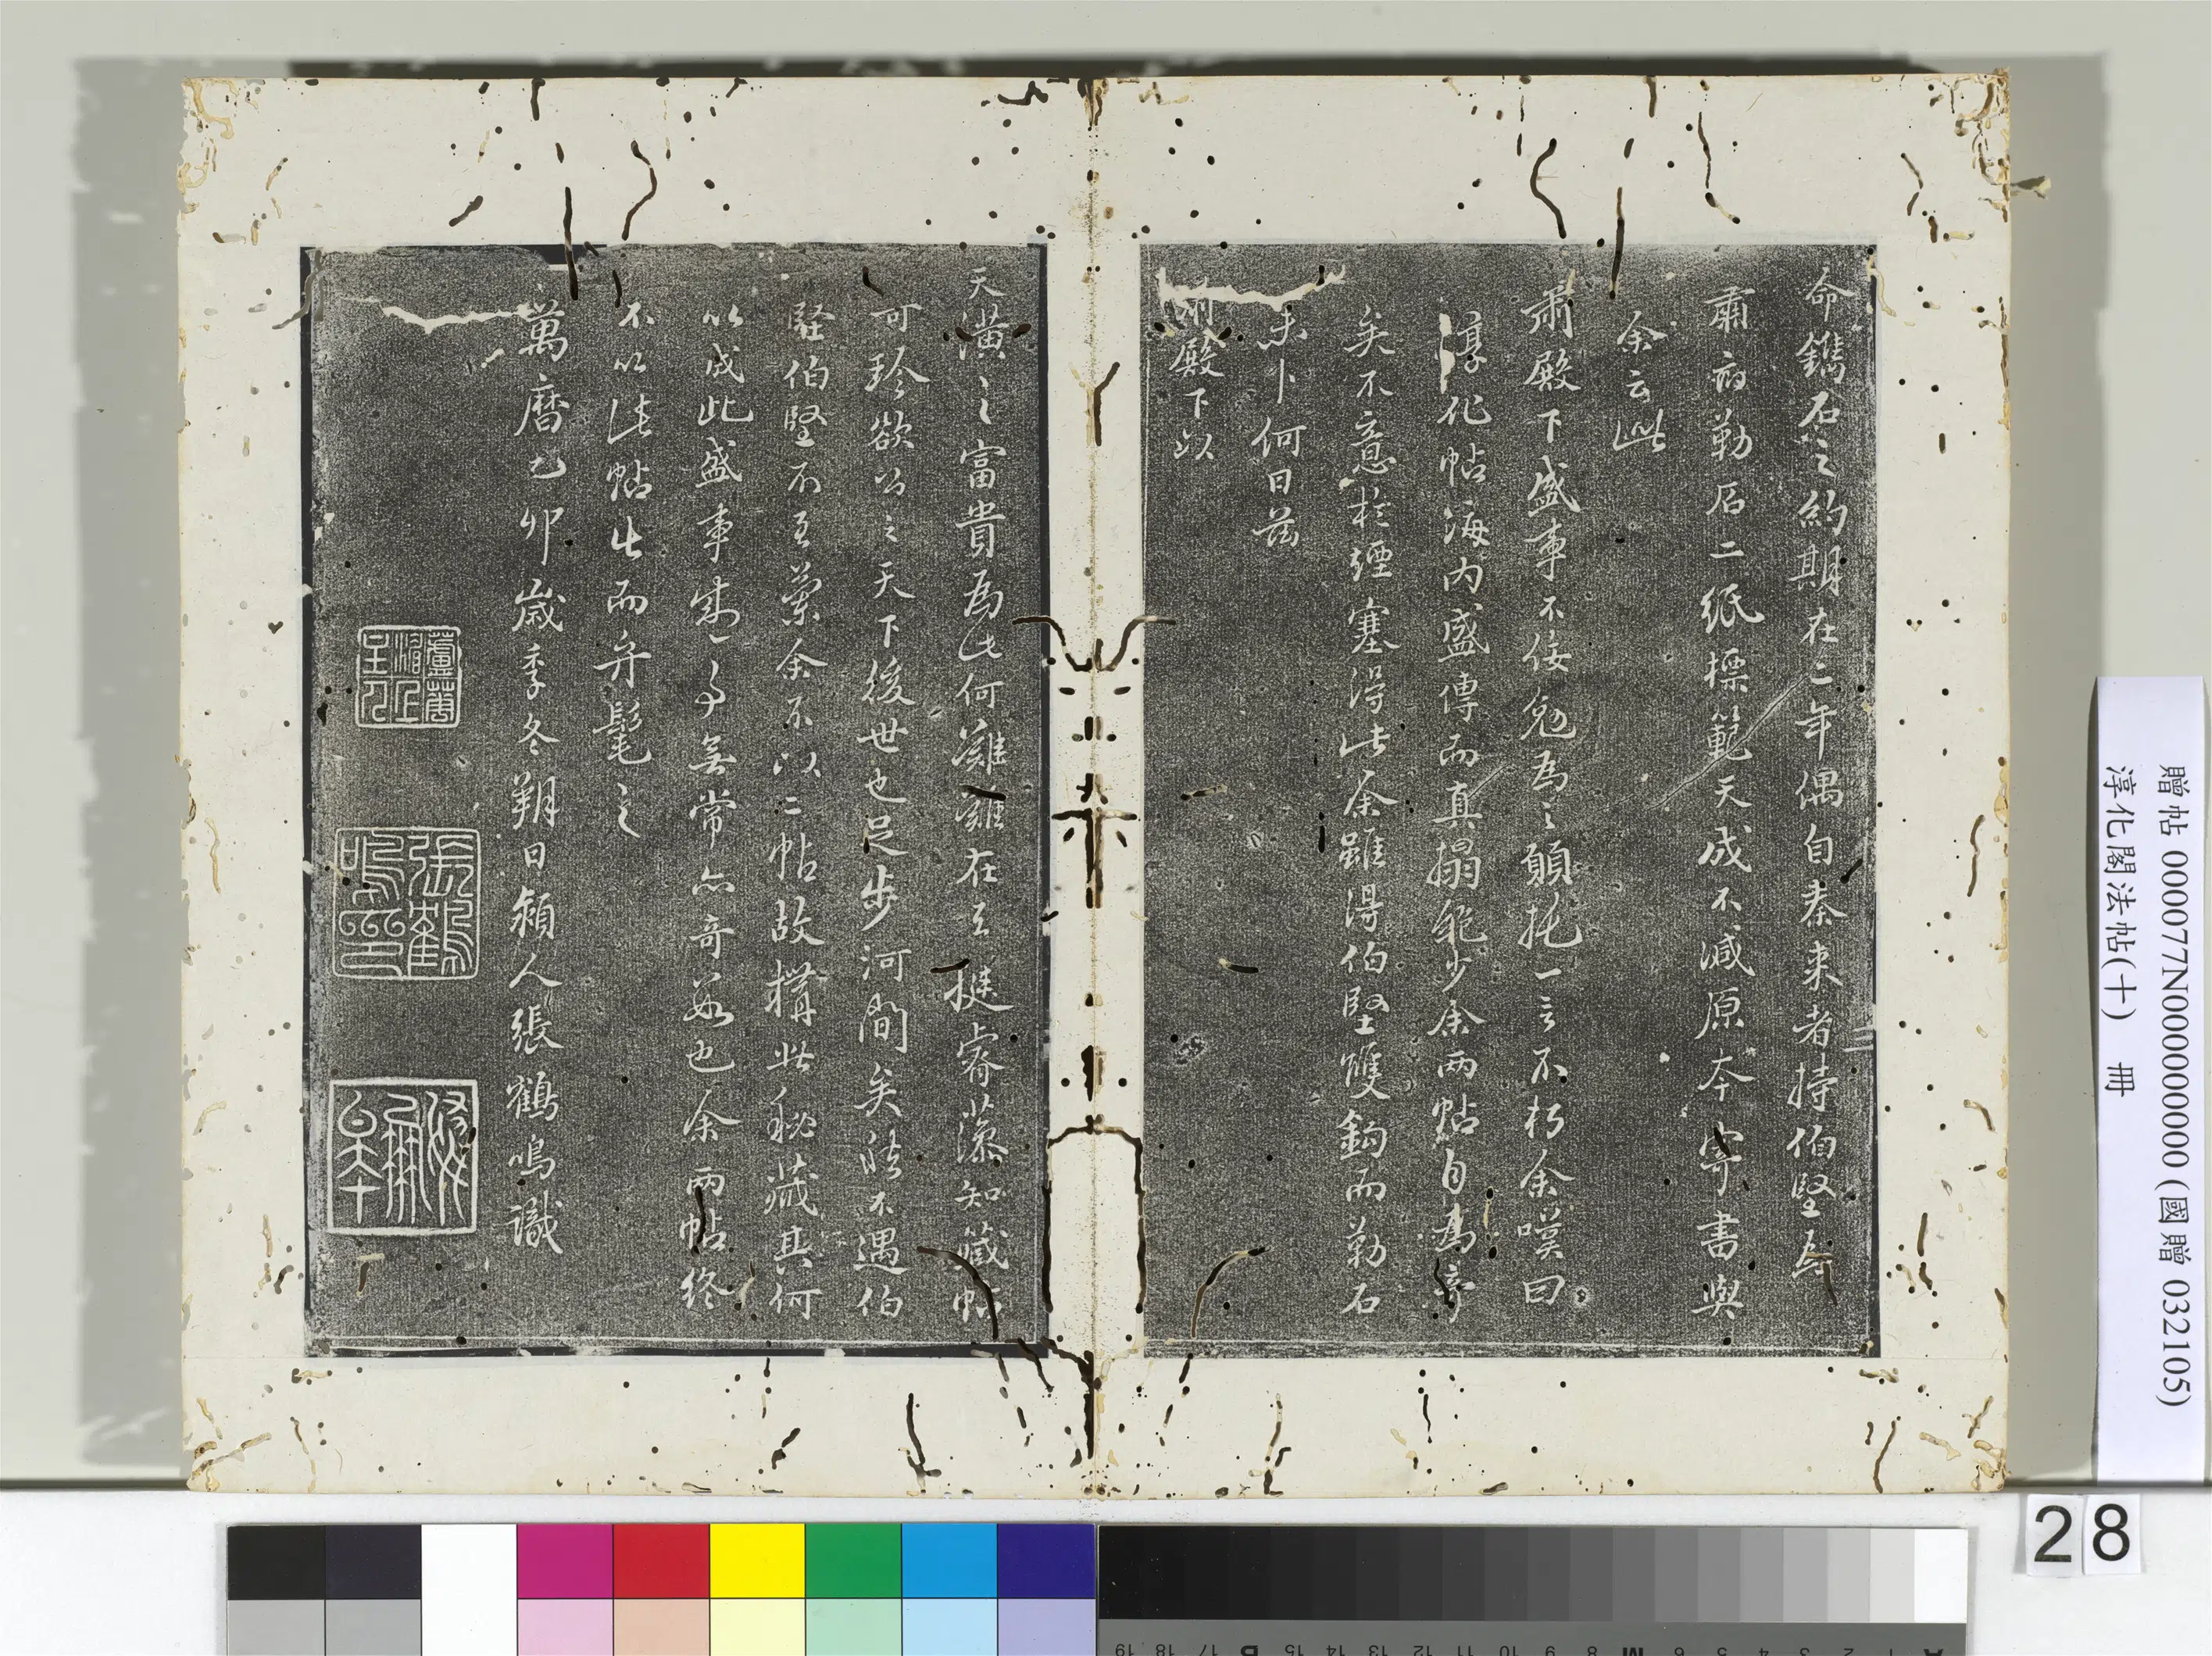 命鐫石之約期在二年偶自秦來者持伯堅為
肅府勒石二紙標範天成不減原本寄書與
余云此
肅殿下盛事不佞勉為之願托一言不朽余嘆曰
淳化帖海内盛傳而真搨絶少余兩帖自為
矣不意於煙塞得此余雖得伯堅雙鉤而勒石
未卜何日茲
肅殿下以
天潢之富貴為此何難難在立挺睿藻知箴帖
可珍欲公之天下後世也足步河間矣然不遇伯
堅伯堅不至蘭余不以二帖故搆此秘藏其何
以成此盛事離合無常亦奇数也余兩帖終
不以此帖出而弁髦之
萬曆乙卯歲季冬朔日潁人張鶴鳴識
張鶴鳴印
贈帖 000077N000000000 (國贈 032105)
淳化閣法帖(十) 冊
28